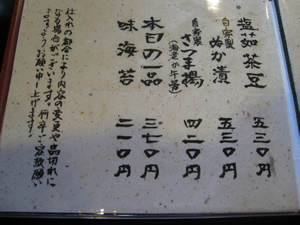 塩茹茶豆 五三〇円
自家製 ぬか漬 五三〇円
自家製 さつま揚 四二〇円
本日の一品 三七〇円
味海苔 二一〇円
仕入れの都合により内容の変更や品切れに
なる場合がございます。何卒ご容赦願い
ますようお願い申し上げます。